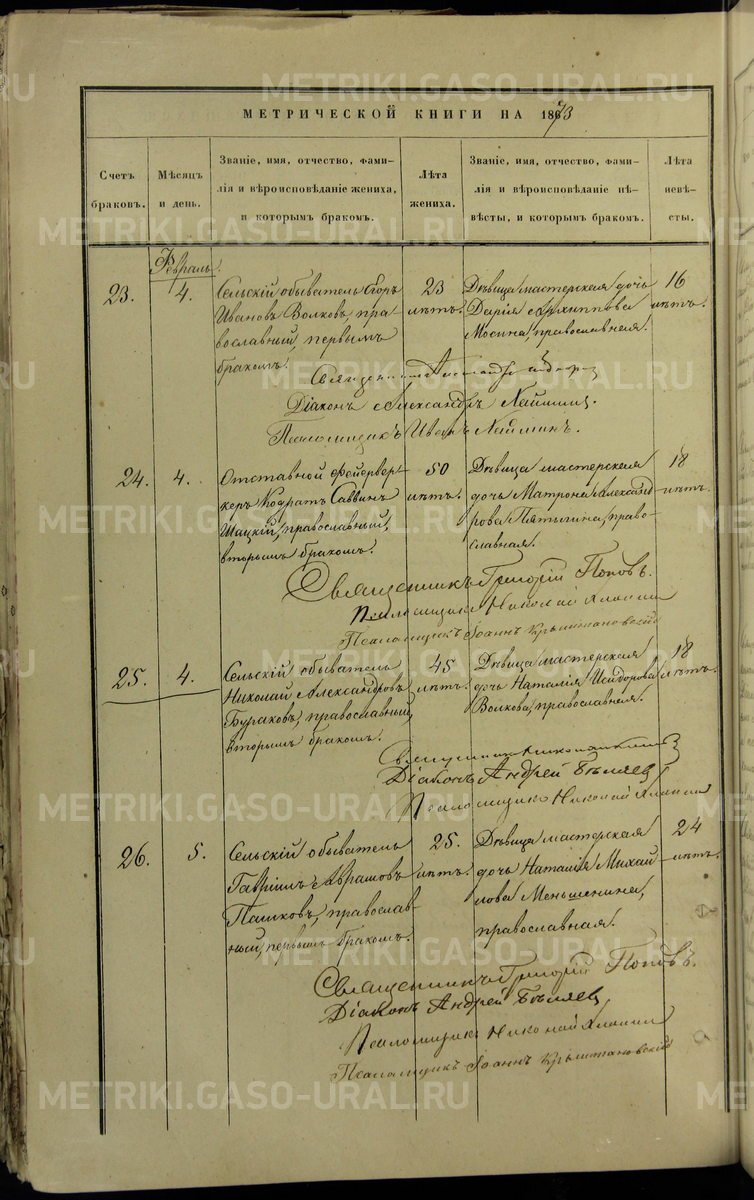 МЕТРИЧЕСКОЙ КНИГИ НА 1873
Счетъ
браковъ.
Мѣсяцъ
и день.
Званіе, имя, отчество, фами-
лія и вѣроисповѣданіе жениха,
и которымъ бракомъ.
Лѣта
жениха.
Званіе, имя, отчество, фами-
лія и вѣроисповѣданіе не-
вѣсты, и которымъ бракомъ.
Лѣта
невѣ-
сты.
Февраль.
23.
4.
Сельскій обыватель Егоръ
Ивановъ Волковъ, пра-
вославный, первымъ
бракомъ.
23
лѣтъ.
Дѣвица мастерская дочь
Дарія Архиппова
Мосина, православная.
16
лѣтъ.
Священникъ
Діаконъ Александръ
Псаломщикъ Иванъ
24.
4.
Отставной фейервер-
керъ Кодратъ Саввинъ
Шацкій, православный,
вторымъ бракомъ.
50
лѣтъ.
Дѣвица мастерская
дочь Матрона Александ
рова Пятыгина, право-
славная.
18
лѣтъ.
Священникъ Григорій Поповъ.
Псаломщикъ Николай
Псаломщикъ Іоаннъ Крыжановскій
25.
4.
Сельскій обыватель
Николай Александровъ
Бураковъ, православный,
вторымъ бракомъ.
45
лѣтъ.
Дѣвица мастерская
дочь Наталія Исидорова
Волкова, православная.
18
лѣтъ.
Священникъ
Діаконъ Андрей Бѣляев
Псаломщикъ Николай
26.
5.
Сельскій обыватель
Гавріилъ Аврамовъ
Пашковъ, православ-
ный, первымъ бракомъ.
25.
лѣтъ.
Дѣвица мастерская
дочь Наталія Михай
лова Меньшенина,
православная.
24
лѣтъ.
Священникъ Григорій Поповъ.
Діаконъ Андрей Бѣляев
Псаломщикъ Николай
Псаломщикъ Іоаннъ Крыжановскій
METRIKI.GASO-URAL.RU